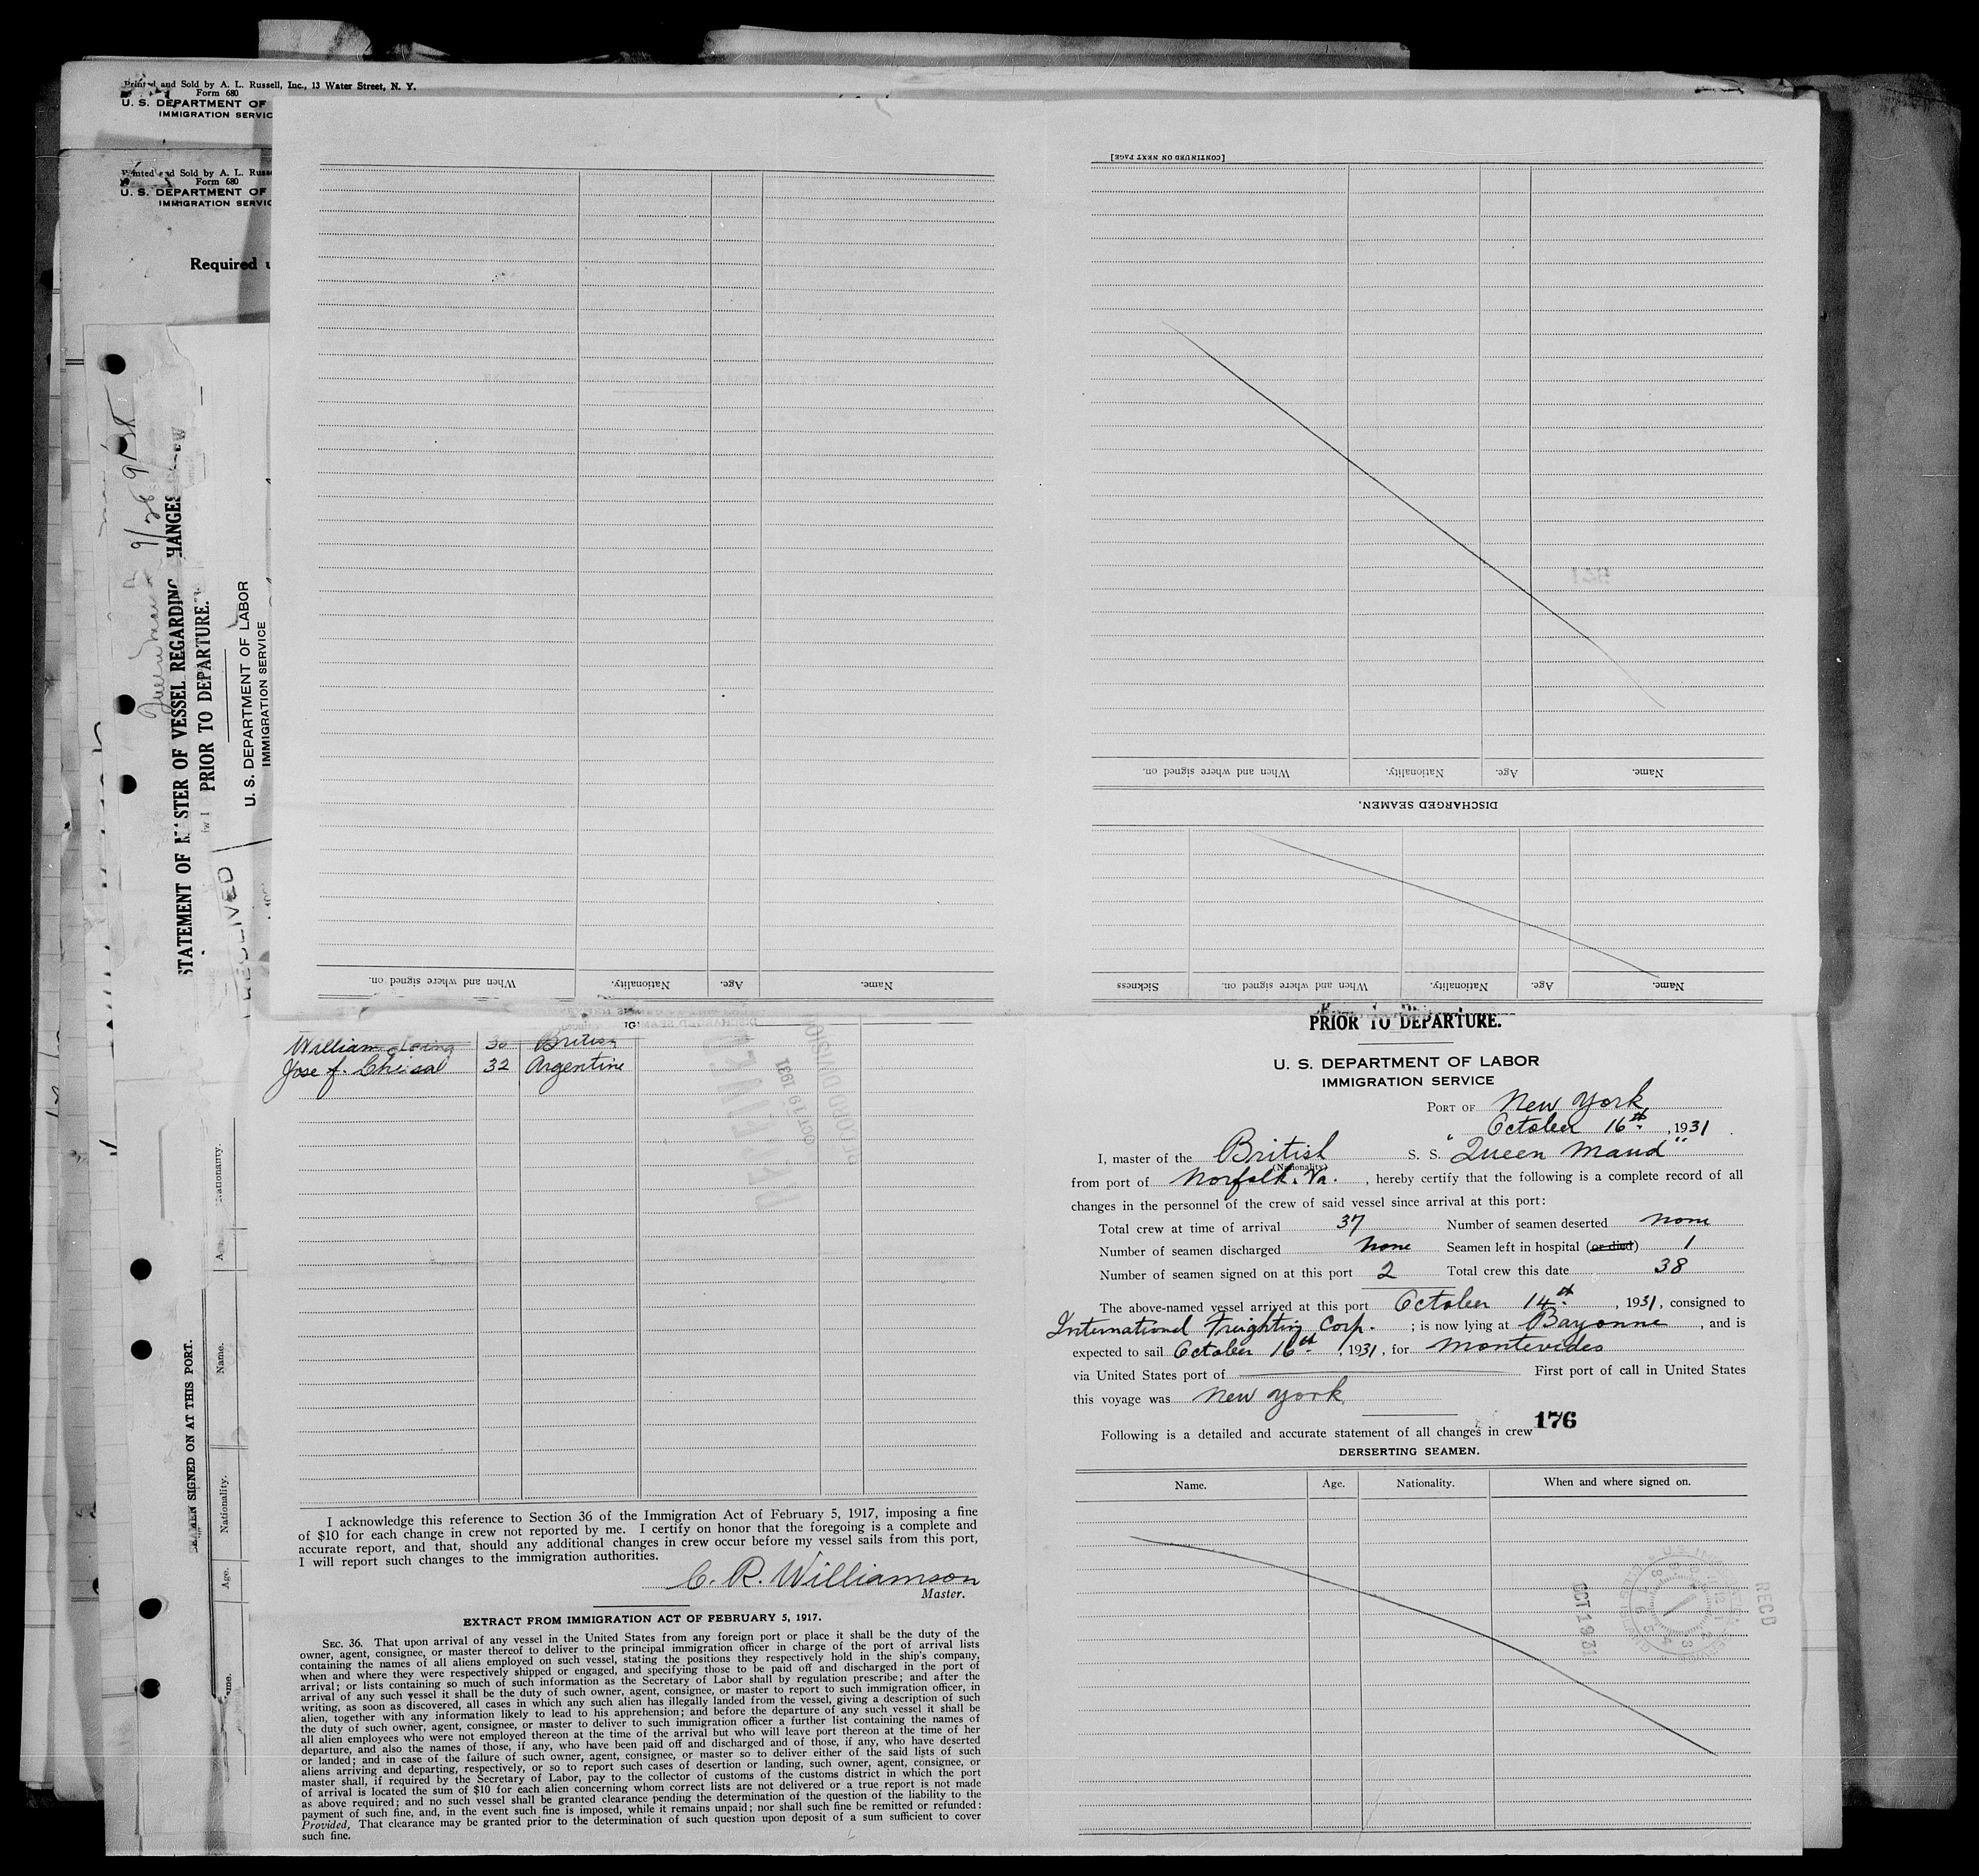 Printed and Sold by A. L. Russell, Inc., 13 Water Street, N. Y.
Form 680
U. S. DEPARTMENT OF
IMMIGRATION SERVIC
Printed and Sold by A. L. Russe
Form 680
U. S. DEPARTMENT OF
IMMIGRATION SERVIC
Required u
STATEMENT OF MASTER OF VESSEL REGARDING CHANGES
PRIOR TO DEPARTURE.
U. S. DEPARTMENT OF LABOR
IMMIGRATION SERVICE
RECEIVED
SEAMEN SIGNED ON AT THIS PORT.
Name.
Age.
Nationality.
Name.
Age.
Nationality.
[CONTINUED ON NEXT PAGE]
When and where signed on.
Nationality.
Age.
Name.
DISCHARGED SEAMEN.
Sickness
When and where signed on.
Nationality.
Age.
Name.
When and where signed on.
Nationality.
Age.
Name.
William 30 British
Jose f. Chisal 32 Argentine
OCT 19 1931
I acknowledge this reference to Section 36 of the Immigration Act of February 5, 1917, imposing a fine
of $10 for each change in crew not reported by me. I certify on honor that the foregoing is a complete and
accurate report, and that, should any additional changes in crew occur before my vessel sails from this port,
I will report such changes to the immigration authorities.
C. R. Williamson
Master.
EXTRACT FROM IMMIGRATION ACT OF FEBRUARY 5, 1917.
SEC. 36. That upon arrival of any vessel in the United States from any foreign port or place it shall be the duty of the
owner, agent, consignee, or master thereof to deliver to the principal immigration officer in charge of the port of arrival lists
containing the names of all aliens employed on such vessel, stating the positions they respectively hold in the ship's company,
when and where they were respectively shipped or engaged, and specifying those to be paid off and discharged in the port of
arrival; or lists containing so much of such information as the Secretary of Labor shall by regulation prescribe; and after the
arrival of any such vessel it shall be the duty of such owner, agent, consignee, or master to report to such immigration officer, in
writing, as soon as discovered, all cases in which any such alien has illegally landed from the vessel, giving a description of such
alien, together with any information likely to lead to his apprehension; and before the departure of any such vessel it shall be
the duty of such owner, agent, consignee, or master to deliver to such immigration officer a further list containing the names of
all alien employees who were not employed thereon at the time of the arrival but who will leave port thereon at the time of her
departure, and also the names of those, if any, who have been paid off and discharged and of those, if any, who have deserted
or landed; and in case of the failure of such owner, agent, consignee, or master so to deliver either of the said lists of such
aliens arriving and departing, respectively, or so to report such cases of desertion or landing, such owner, agent, consignee, or
master shall, if required by the Secretary of Labor, pay to the collector of customs of the customs district in which the port
of arrival is located the sum of $10 for each alien concerning whom correct lists are not delivered or a true report is not made
as above required; and no such vessel shall be granted clearance pending the determination of the question of the liability to the
payment of such fine, and, in the event such fine is imposed, while it remains unpaid; nor shall such fine be remitted or refunded:
Provided, That clearance may be granted prior to the determination of such question upon deposit of a sum sufficient to cover
such fine.
PRIOR TO DEPARTURE.
U. S. DEPARTMENT OF LABOR
IMMIGRATION SERVICE
PORT OF New York
October 16th, 1931
I, master of the British S. S. "Queen Maud"
(Nationality)
from port of Norfolk. Va., hereby certify that the following is a complete record of all
changes in the personnel of the crew of said vessel since arrival at this port:
Total crew at time of arrival 37 Number of seamen deserted none
Number of seamen discharged none Seamen left in hospital (or died) 1
Number of seamen signed on at this port 2 Total crew this date 38
The above-named vessel arrived at this port October 14th, 1931, consigned to
International Freighting Corp.; is now lying at Bayonne, and is
expected to sail October 16th, 1931, for Montevideo
via United States port of First port of call in United States
this voyage was New York
176
Following is a detailed and accurate statement of all changes in crew
DERSERTING SEAMEN.
Name. Age. Nationality. When and where signed on.
OCT 19 31
RECD